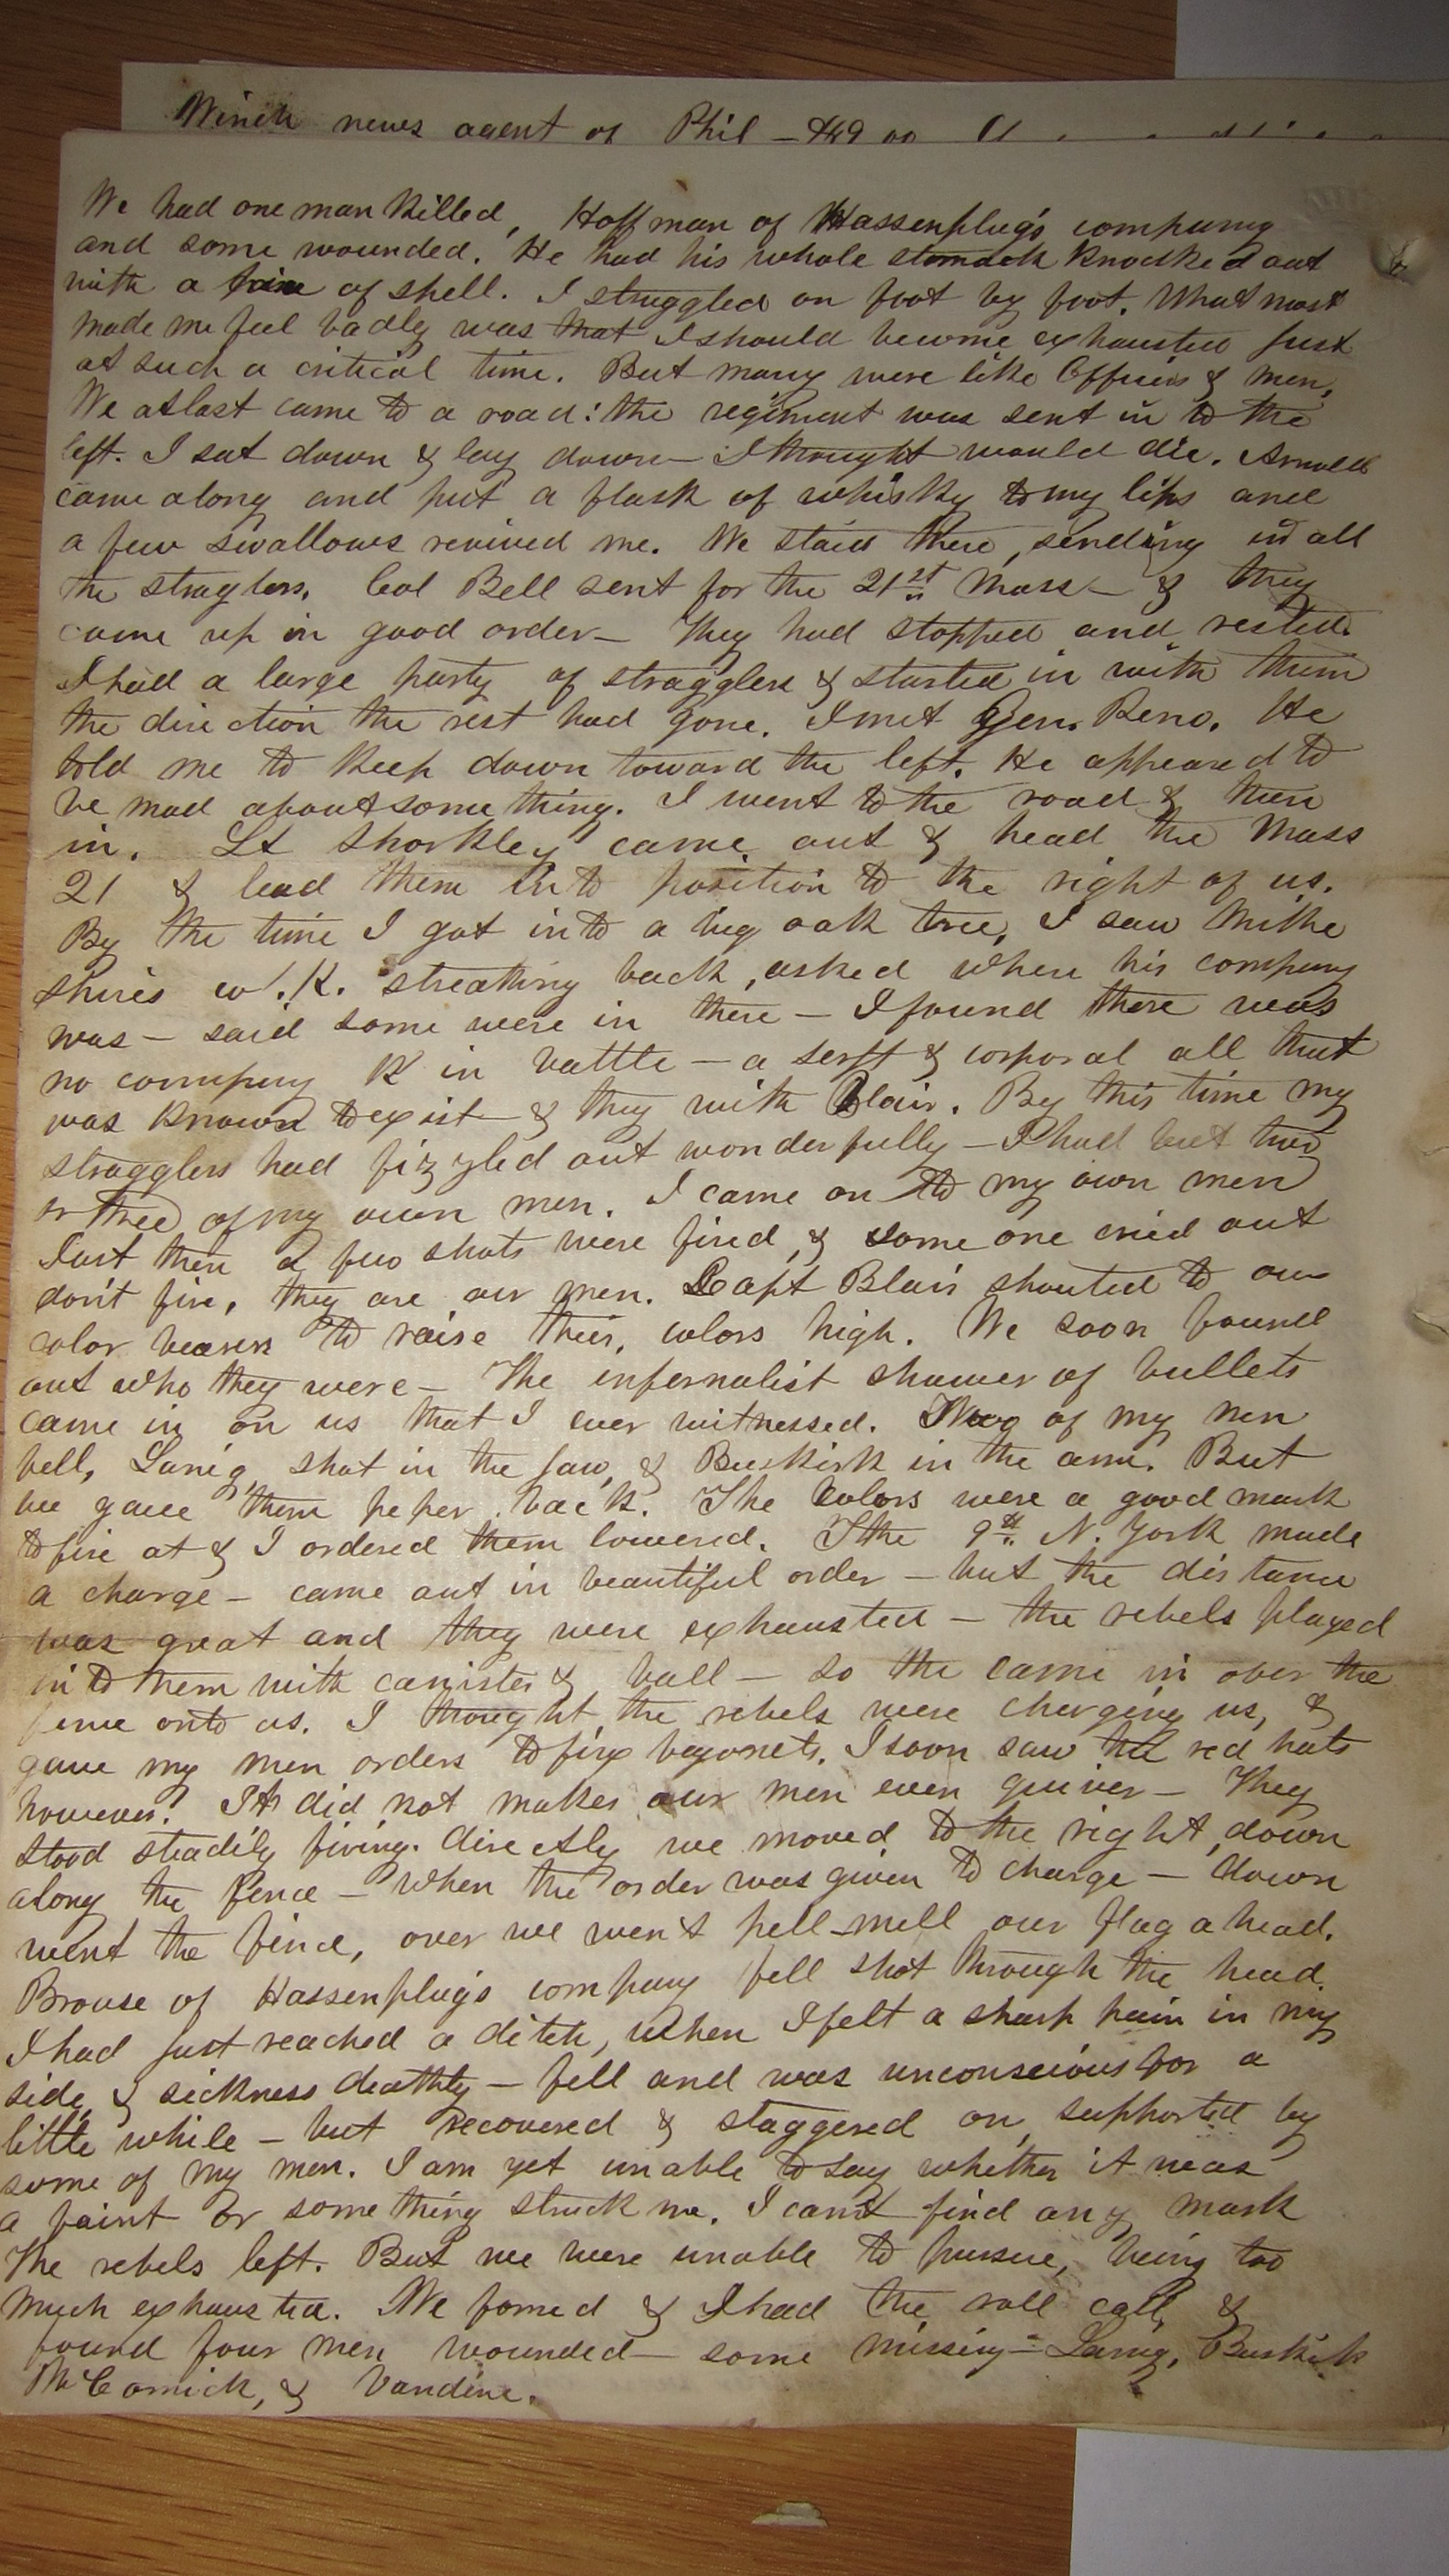 Winch news agent of Phil - $49 00
We had one man killed, Hoffman of Hassenplug's company
and some wounded. He had his whole stomack knocked out
with a of shell. I struggled on foot by foot. What most
made me feel badly was that I should become exhausted just
at such a critical time. But many were like Officers & men,
We at last came to a road: the regiment was sent in to the
left. I sat down & lay down - I thought would die. Arnold
came along and put a flask of whisky to my lips and
a few swallows revived me. We staid there, sending in all
the straglers. Col Bell sent for the 21st Mass - & they
came up in good order - They had stopped and rested.
I had a large party of stragglers & started in with them
the direction the rest had gone. I met Gen. Reno. He
told me to keep down toward the left. He appeared to
be mad about some thing. I went to the road & then
in. Lt Shorkley came out & head the Mass
21 & lead them into position to the right of us.
By the time I got into a big oak tree, I saw Mike
Shires co. K. streaking back, asked where his company
was - said some were in there - I found there was
no company K in battle - a serg't & corporal all that
was known to exist - & they with Blair. By this time my
stragglers had fizzled out wonderfully - I had but two
or three of my own men. I came on to my own men
Just then a few shots were fired, & some one cried out
don't fire, they are our men. Capt Blair shouted to our
color bearers to raise their colors high. We soon found
out who they were - The infernalist shower of bullets
came in on us that I ever witnessed. Two of my men
fell, Lanig, shot in the jaw, & Buskirk in the arm. But
we gave them peper back. The Colors were a good mark
to fire at & I ordered them lowered. The 9th N. York made
a charge - came out in beautiful order - but the distance
was great and they were exhausted - the rebels played
into them with canister & ball - so the came in over the
fence onto us. I thought the rebels were charging us, &
gave my men orders to fix bayonets. I soon saw the red hats
however. It did not makes our men even quiver - They
stood steadily firing. directly we moved to the right, down
along the fence - when the order was given to charge - down
went the fence, over we went pell-mell our flag ahead.
Brouse of Hassenplug's company fell shot through the head.
I had just reached a ditch, when I felt a sharp pain in my
side, & sickness deathly - fell and was unconscious for a
little while - but recovered & staggered on, supported by
some of my men. I am yet unable to say whether it was
a faint or some thing struck me. I cant find any mark
The rebels left. But we were unable to pursue, being too
much exhausted. We formed & I had the roll call, &
found four men wounded - some missing - Lanig, Buskirk
McCormick, & Vandine.